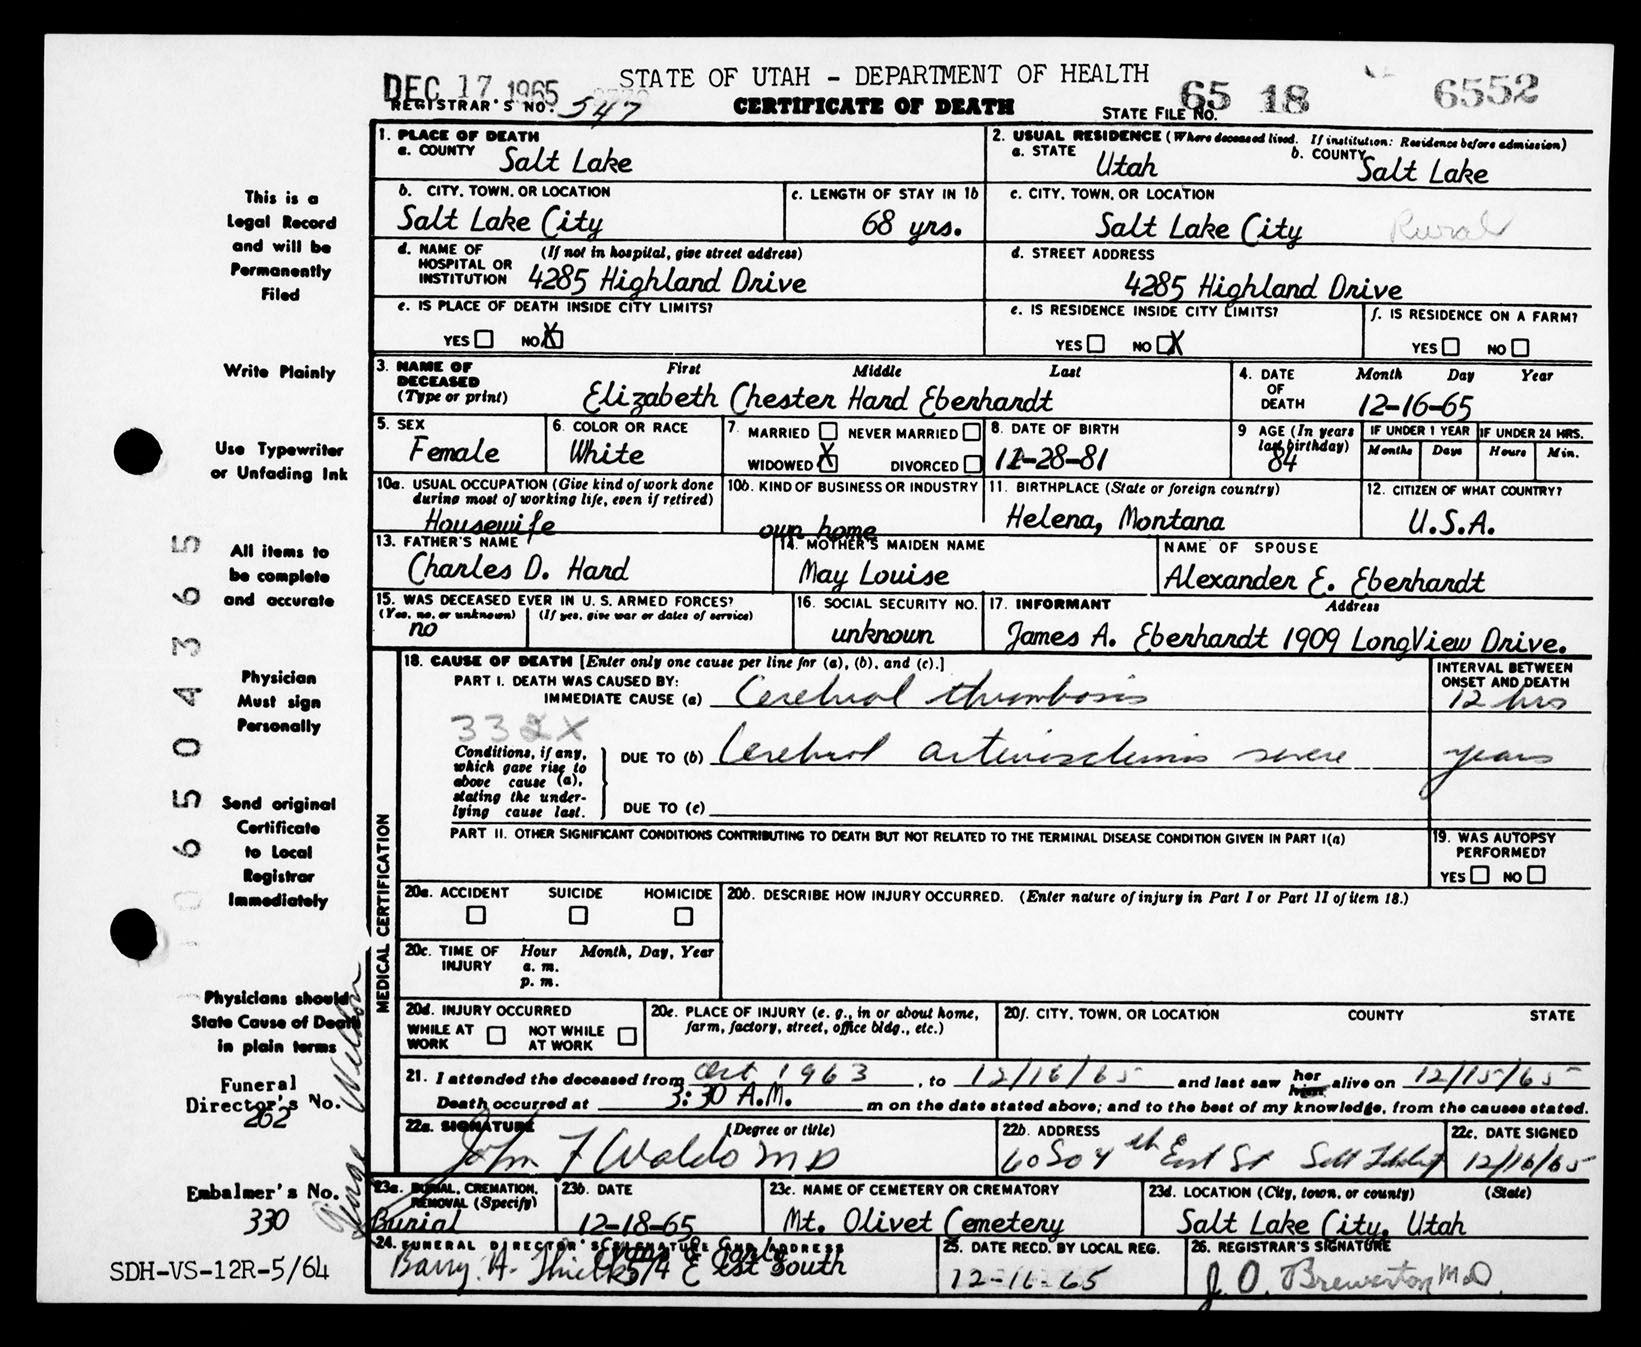 DEC 17 1965
STATE OF UTAH - DEPARTMENT OF HEALTH
REGISTRAR'S NO. 547
CERTIFICATE OF DEATH
STATE FILE NO. 65 18 6552
This is a
Legal Record
and will be
Permanently
Filed
Write Plainly
Use Typewriter
or Unfading Ink
All items to
be complete
and accurate
Physician
Must sign
Personally
Send original
Certificate
to Local
Registrar
Immediately
Physicians should
State Cause of Death
in plain terms
Funeral
Director's No.
262
Embalmer's No.
330
SDH-VS-12R-5/64
106504365
1. PLACE OF DEATH
a. COUNTY Salt Lake
2. USUAL RESIDENCE (Where deceased lived. If institution: Residence before admission)
a. STATE Utah b. COUNTY Salt Lake
b. CITY, TOWN, OR LOCATION
Salt Lake City
c. LENGTH OF STAY IN 1b
68 yrs.
c. CITY, TOWN, OR LOCATION
Salt Lake City Rural
d. NAME OF HOSPITAL OR INSTITUTION (If not in hospital, give street address)
4285 Highland Drive
d. STREET ADDRESS
4285 Highland Drive
e. IS PLACE OF DEATH INSIDE CITY LIMITS?
YES NO X
e. IS RESIDENCE INSIDE CITY LIMITS?
YES NO X
f. IS RESIDENCE ON A FARM?
YES NO
3. NAME OF DECEASED (Type or print) First Middle Last
Elizabeth Chester Hard Eberhardt
4. DATE OF DEATH Month Day Year
12-16-65
5. SEX
Female
6. COLOR OR RACE
White
7. MARRIED NEVER MARRIED
WIDOWED X DIVORCED
8. DATE OF BIRTH
11-28-81
9 AGE (In years last birthday)
84
IF UNDER 1 YEAR
Months Days
IF UNDER 24 HRS.
Hours Min.
10a. USUAL OCCUPATION (Give kind of work done during most of working life, even if retired)
Housewife
10b. KIND OF BUSINESS OR INDUSTRY
own home
11. BIRTHPLACE (State or foreign country)
Helena, Montana
12. CITIZEN OF WHAT COUNTRY?
U.S.A.
13. FATHER'S NAME
Charles D. Hard
14. MOTHER'S MAIDEN NAME
May Louise
NAME OF SPOUSE
Alexander E. Eberhardt
15. WAS DECEASED EVER IN U. S. ARMED FORCES?
(Yes, no, or unknown) (If yes, give war or dates of service)
no
16. SOCIAL SECURITY NO.
unknown
17. INFORMANT Address
James A. Eberhardt 1909 LongView Drive.
MEDICAL CERTIFICATION
18. CAUSE OF DEATH [Enter only one cause per line for (a), (b), and (c).]
PART I. DEATH WAS CAUSED BY:
IMMEDIATE CAUSE (a) Cerebral thrombosis
INTERVAL BETWEEN ONSET AND DEATH
12 hrs
332X
Conditions, if any,
which gave rise to
above cause (a),
stating the under-
lying cause last.
DUE TO (b) Cerebral arteriosclerosis severe
years
DUE TO (c)
PART II. OTHER SIGNIFICANT CONDITIONS CONTRIBUTING TO DEATH BUT NOT RELATED TO THE TERMINAL DISEASE CONDITION GIVEN IN PART I(a)
19. WAS AUTOPSY PERFORMED?
YES NO
20a. ACCIDENT SUICIDE HOMICIDE
20b. DESCRIBE HOW INJURY OCCURRED. (Enter nature of injury in Part I or Part II of item 18.)
20c. TIME OF INJURY Hour Month, Day, Year
a. m.
p. m.
20d. INJURY OCCURRED
WHILE AT WORK NOT WHILE AT WORK
20e. PLACE OF INJURY (e. g., in or about home, farm, factory, street, office bldg., etc.)
20f. CITY, TOWN, OR LOCATION COUNTY STATE
21. I attended the deceased from Oct 1963, to 12/16/65 and last saw her him alive on 12/15/65
Death occurred at 3:30 A.M. m on the date stated above; and to the best of my knowledge, from the causes stated.
22a. SIGNATURE (Degree or title)
John F Waldo MD
22b. ADDRESS
60 So 4th East St Salt Lake City
22c. DATE SIGNED
12/16/65
23a. BURIAL, CREMATION, REMOVAL (Specify)
Burial
23b. DATE
12-18-65
23c. NAME OF CEMETERY OR CREMATORY
Mt. Olivet Cemetery
23d. LOCATION (City, town, or county) (State)
Salt Lake City, Utah
24. FUNERAL DIRECTOR'S SIGNATURE AND ADDRESS
Evans & Early
574 E 1st South
25. DATE RECD. BY LOCAL REG.
12-16-65
26. REGISTRAR'S SIGNATURE
J. O. Brewerton MD.